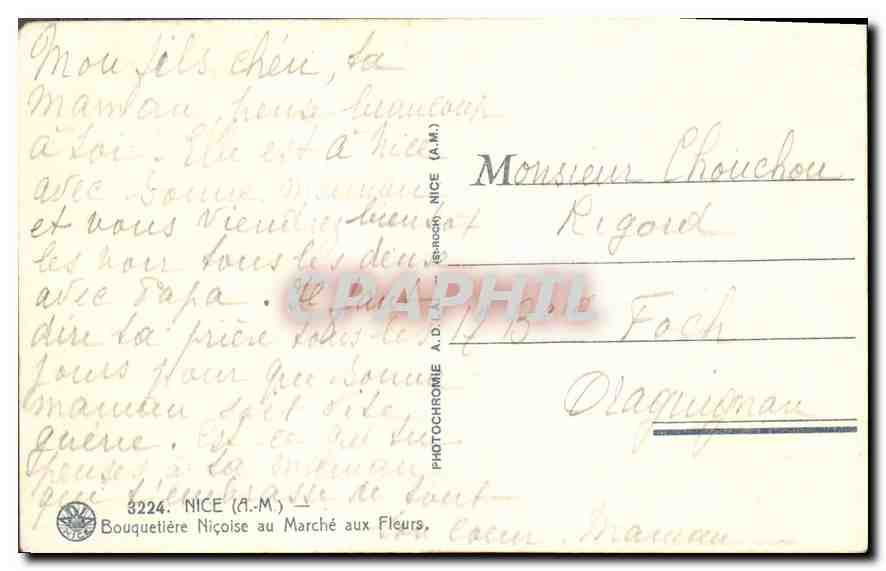 Mon fils chéri, ta
maman pense beaucoup
à toi. Elle est à Nice
avec bonne maman
et vous viendrez bientot
les voir tous les deux
avec Papa. Il faut
dire ta prière tous les
jours pour que bonne
maman soit vite
guérie. Est ce que tu
penses à ta maman
qui t'embrasse de tout
son coeur. Maman
3224. NICE (A.-M.) —
Bouquetière Niçoise au Marché aux Fleurs.
NICE
PHOTOCHROMIE A.D.I.A. — (St-ROCH) NICE (A.M.)
CPAPHIL
Monsieur Chouchou
Rigord
17 Bd Foch
Draguignan